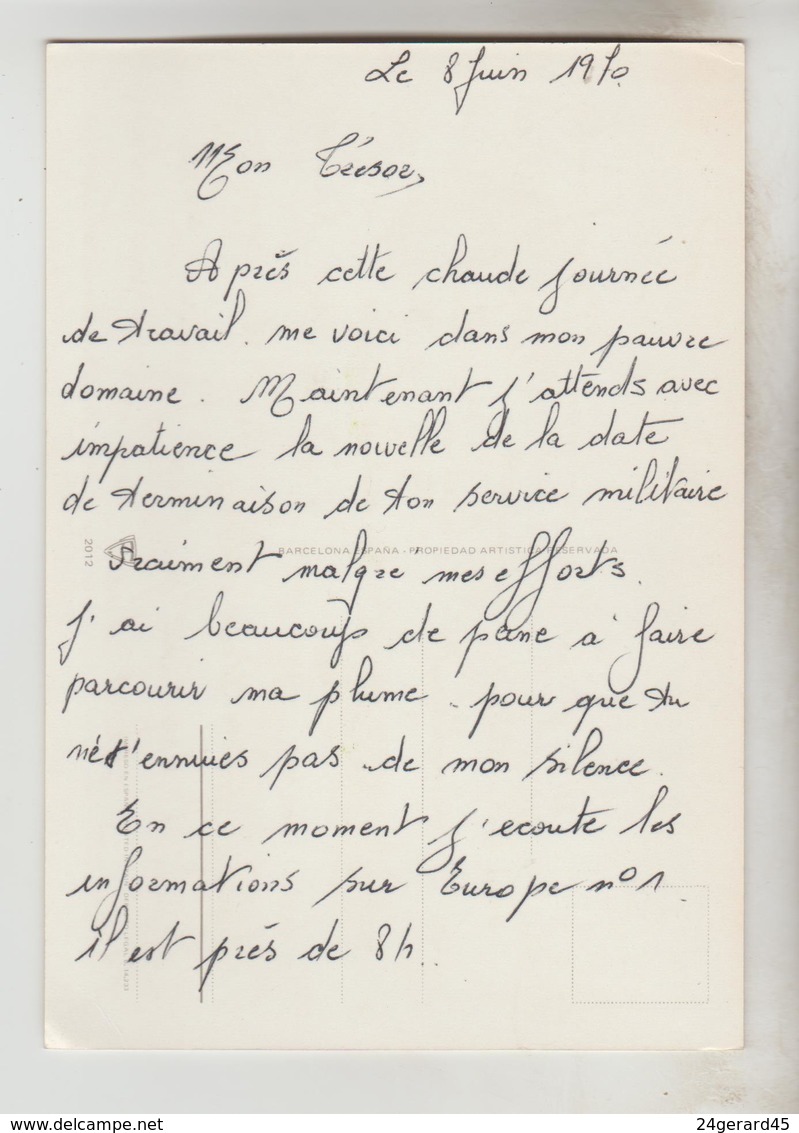 Le 8 Juin 1970
Mon Trésor,
Après cette chaude journée
de travail. me voici dans mon pauvre
domaine. Maintenant j'attends avec
impatience la nouvelle de la date
de terminaison de ton service militaire
2012
BARCELONA ESPAÑA - PROPIEDAD ARTISTICA RESERVADA
Vraiment malgré mes efforts.
J'ai beaucoup de pene à faire
parcourir ma plume. pour que tu
ne t'ennuies pas de mon silence.
En ce moment j'ecoute les
informations sur Europe n° 1.
il est prés de 8h..
www.delcampe.net
24gerard45